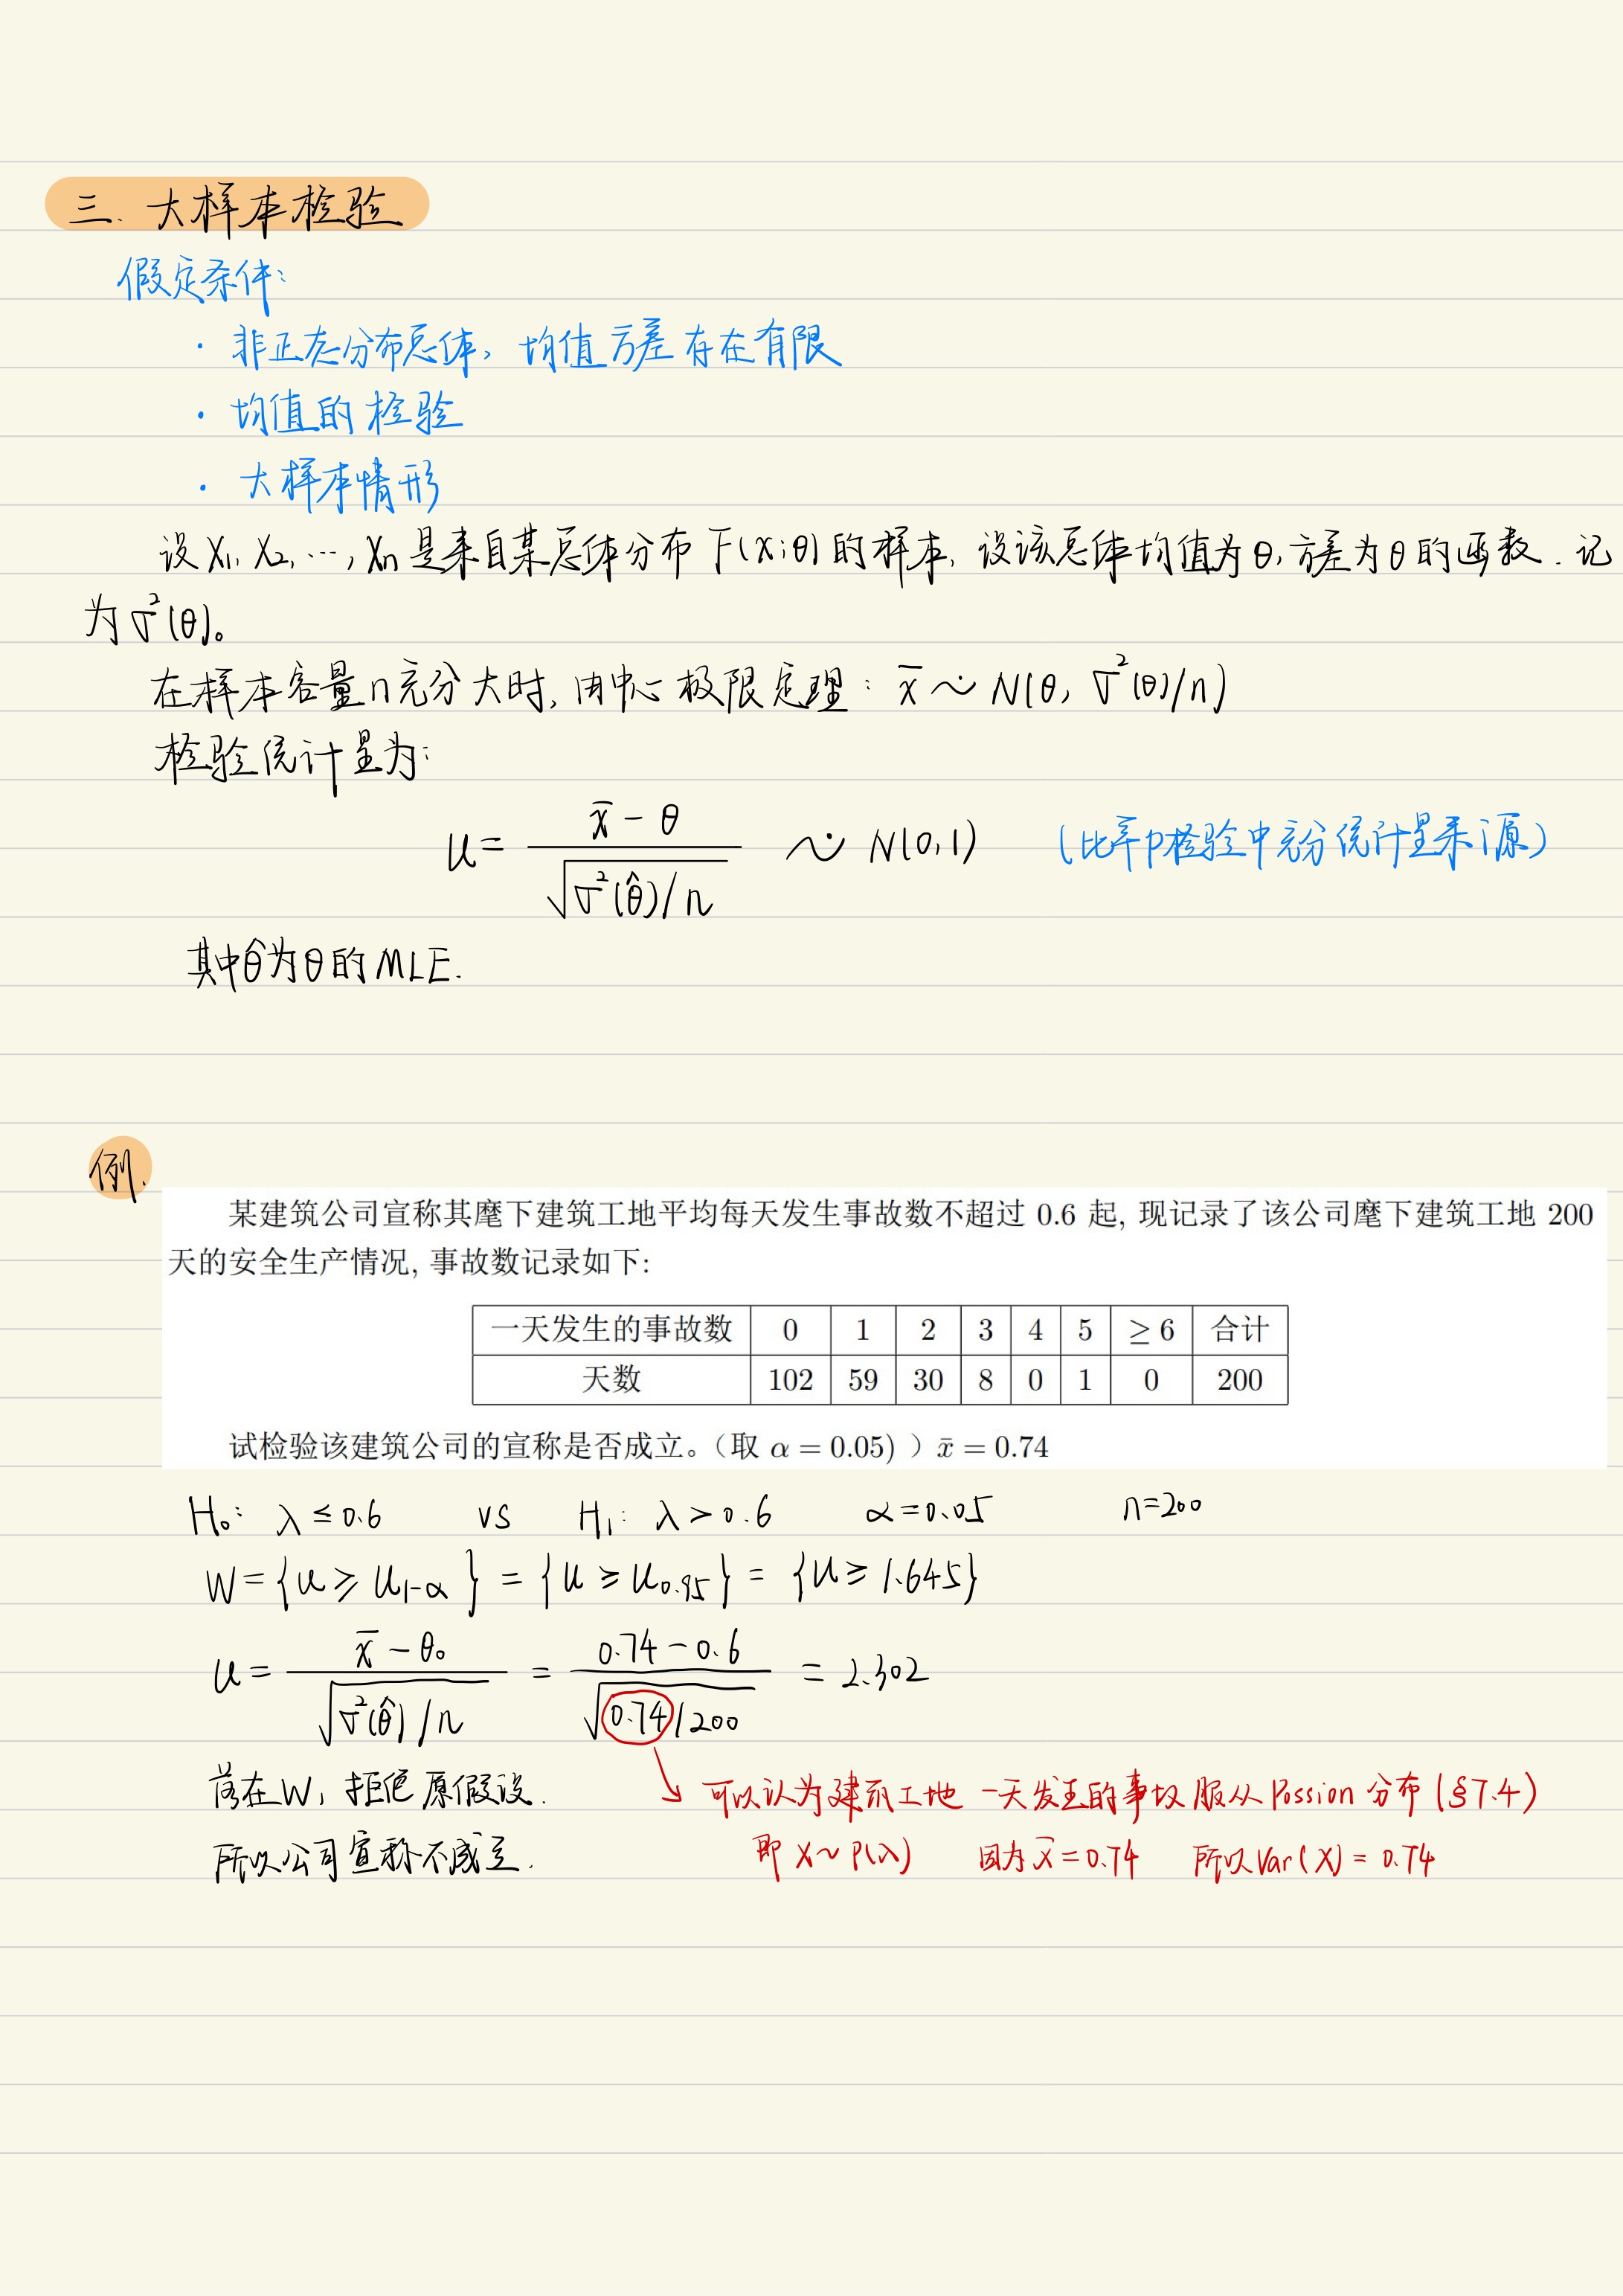 三. 大样本检验
假定条件:
· 非正态分布总体, 均值方差存在有限
· 均值的检验
· 大样本情形
设 x₁, x₂, ⋯, xₙ 是来自某总体分布 F(x;θ) 的样本, 设该总体均值为 θ, 方差为 θ 的函数. 记
为 σ²(θ)。
在样本容量 n 充分大时, 由中心极限定理: x̄ ∼̇ N(θ, σ²(θ)/n)
检验统计量为:
u = (x̄ − θ) / √(σ²(θ̂)/n) ∼̇ N(0,1) (比率p检验中充分统计量来源)
其中 θ̂ 为 θ 的 MLE.
例.
某建筑公司宣称其麾下建筑工地平均每天发生事故数不超过 0.6 起, 现记录了该公司麾下建筑工地 200
天的安全生产情况, 事故数记录如下:
一天发生的事故数 0 1 2 3 4 5 ≥ 6 合计
天数 102 59 30 8 0 1 0 200
试检验该建筑公司的宣称是否成立。(取 α = 0.05) ) x̄ = 0.74
H₀: λ ≤ 0.6 vs H₁: λ > 0.6 α = 0.05 n = 200
W = {u ≥ u₁₋α} = {u ≥ u₀.₉₅} = {u ≥ 1.645}
u = (x̄ − θ₀) / √(σ²(θ̂)/n) = (0.74 − 0.6) / √(0.74/200) = 2.302
落在W, 拒绝原假设.
可以认为建筑工地一天发生的事故服从 Possion 分布 (§7.4)
所以公司宣称不成立.
即 X ∼ P(λ) 因为 x̄ = 0.74 所以 Var(X) = 0.74